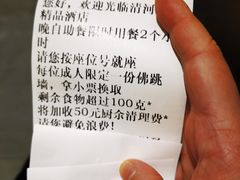 您好，欢迎光临清河
精品酒店
晚自助餐限时用餐2个小
时
请您按座位号就座
每位成人限定一份佛跳
墙，拿小票换取
剩余食物超过100克*
将加收50元厨余清理费*
请您避免浪费！